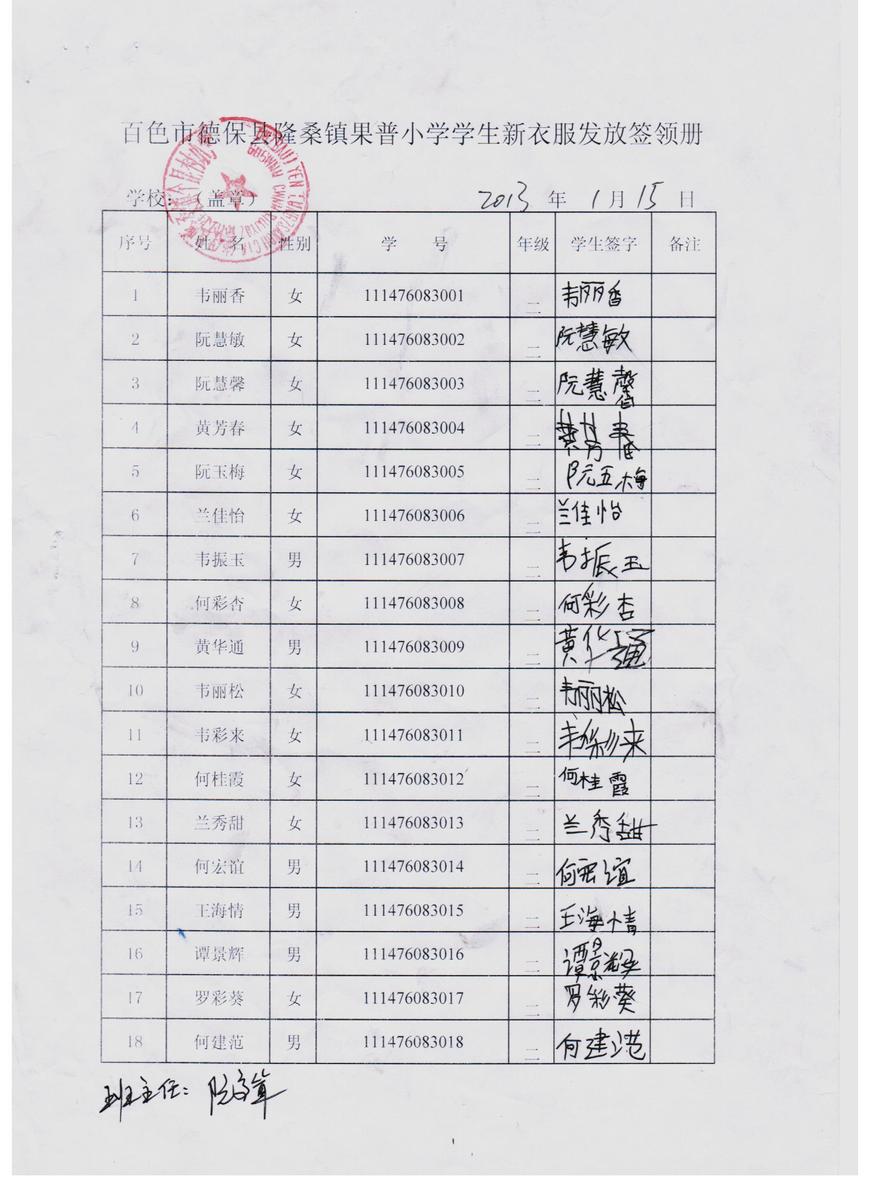 百色市德保县隆桑镇果普小学学生新衣服发放签领册
学校：（盖章） 2013 年 1 月 15 日
序号 姓 名 性别 学 号 年级 学生签字 备注
1 韦丽香 女 111476083001 二 韦丽香
2 阮慧敏 女 111476083002 二 阮慧敏
3 阮慧馨 女 111476083003 二 阮慧馨
4 黄芳春 女 111476083004 二 黄芳春
5 阮玉梅 女 111476083005 二 阮五梅
6 兰佳怡 女 111476083006 二 兰佳怡
7 韦振玉 男 111476083007 二 韦振玉
8 何彩杏 女 111476083008 二 何彩杏
9 黄华通 男 111476083009 二 黄华通
10 韦丽松 女 111476083010 二 韦丽松
11 韦彩来 女 111476083011 二 韦彩来
12 何桂霞 女 111476083012 二 何桂霞
13 兰秀甜 女 111476083013 二 兰秀甜
14 何宏谊 男 111476083014 二 何宏谊
15 王海情 男 111476083015 二 王海情
16 谭景辉 男 111476083016 二 谭景辉
17 罗彩葵 女 111476083017 二 罗彩葵
18 何建范 男 111476083018 二 何建范
班主任：阮